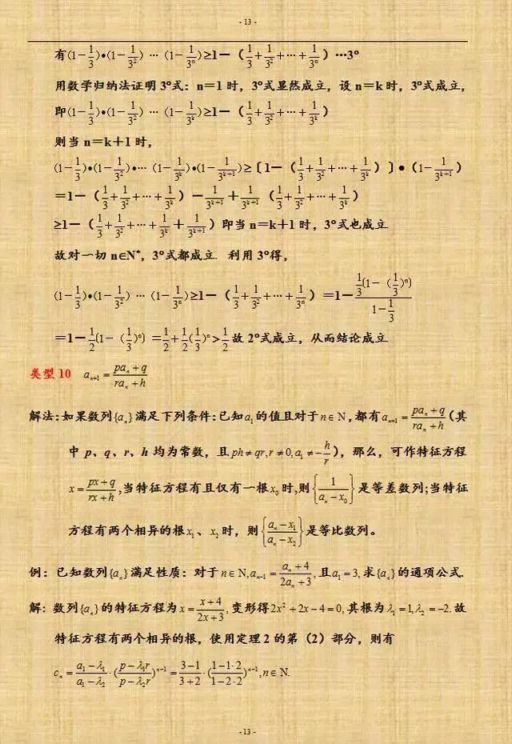 - 13 -
有(1-1/3)•(1-1/3²) ··· (1-1/3ⁿ)≥1-(1/3+1/3²+···+1/3ⁿ)···3°
用数学归纳法证明 3°式：n=1 时，3°式显然成立，设 n=k 时，3°式成立，
即(1-1/3)•(1-1/3²) ··· (1-1/3ᵏ)≥1-(1/3+1/3²+···+1/3ᵏ)
则当 n=k+1 时，
(1-1/3)•(1-1/3²)•··· (1-1/3ᵏ)•(1-1/3ᵏ⁺¹)≥〔1-(1/3+1/3²+···+1/3ᵏ)〕•(1-1/3ᵏ⁺¹)
=1-(1/3+1/3²+···+1/3ᵏ)-1/3ᵏ⁺¹+1/3ᵏ⁺¹(1/3+1/3²+···+1/3ᵏ)
≥1-(1/3+1/3²+···+1/3ᵏ+1/3ᵏ⁺¹)即当 n=k+1 时，3°式也成立
故对一切 n∈N*，3°式都成立 利用 3°得，
(1-1/3)•(1-1/3²) ··· (1-1/3ⁿ)≥1-(1/3+1/3²+···+1/3ⁿ)=1-(1/3[1-(1/3)ⁿ])/(1-1/3)
=1-1/2[1-(1/3)ⁿ]=1/2+1/2(1/3)ⁿ>1/2故 2°式成立，从而结论成立
类型 10 aₙ₊₁=(paₙ+q)/(raₙ+h)
解法:如果数列{aₙ}满足下列条件:已知a₁的值且对于n∈N,都有aₙ₊₁=(paₙ+q)/(raₙ+h)(其
中 p、q、r、h 均为常数，且ph≠qr,r≠0,a₁≠-h/r)，那么，可作特征方程
x=(px+q)/(rx+h),当特征方程有且仅有一根x₀时,则{1/(aₙ-x₀)}是等差数列;当特征
方程有两个相异的根x₁、x₂时，则{(aₙ-x₁)/(aₙ-x₂)}是等比数列。
例：已知数列{aₙ}满足性质：对于n∈N,aₙ₊₁=(aₙ+4)/(2aₙ+3),且a₁=3,求{aₙ}的通项公式.
解: 数列{aₙ}的特征方程为x=(x+4)/(2x+3),变形得2x²+2x-4=0,其根为λ₁=1,λ₂=-2.故
特征方程有两个相异的根，使用定理 2 的第（2）部分，则有
cₙ=(a₁-λ₁)/(a₁-λ₂)·((p-λ₁r)/(p-λ₂r))ⁿ⁻¹=(3-1)/(3+2)·((1-1·2)/(1-2·2))ⁿ⁻¹,n∈N.
- 13 -